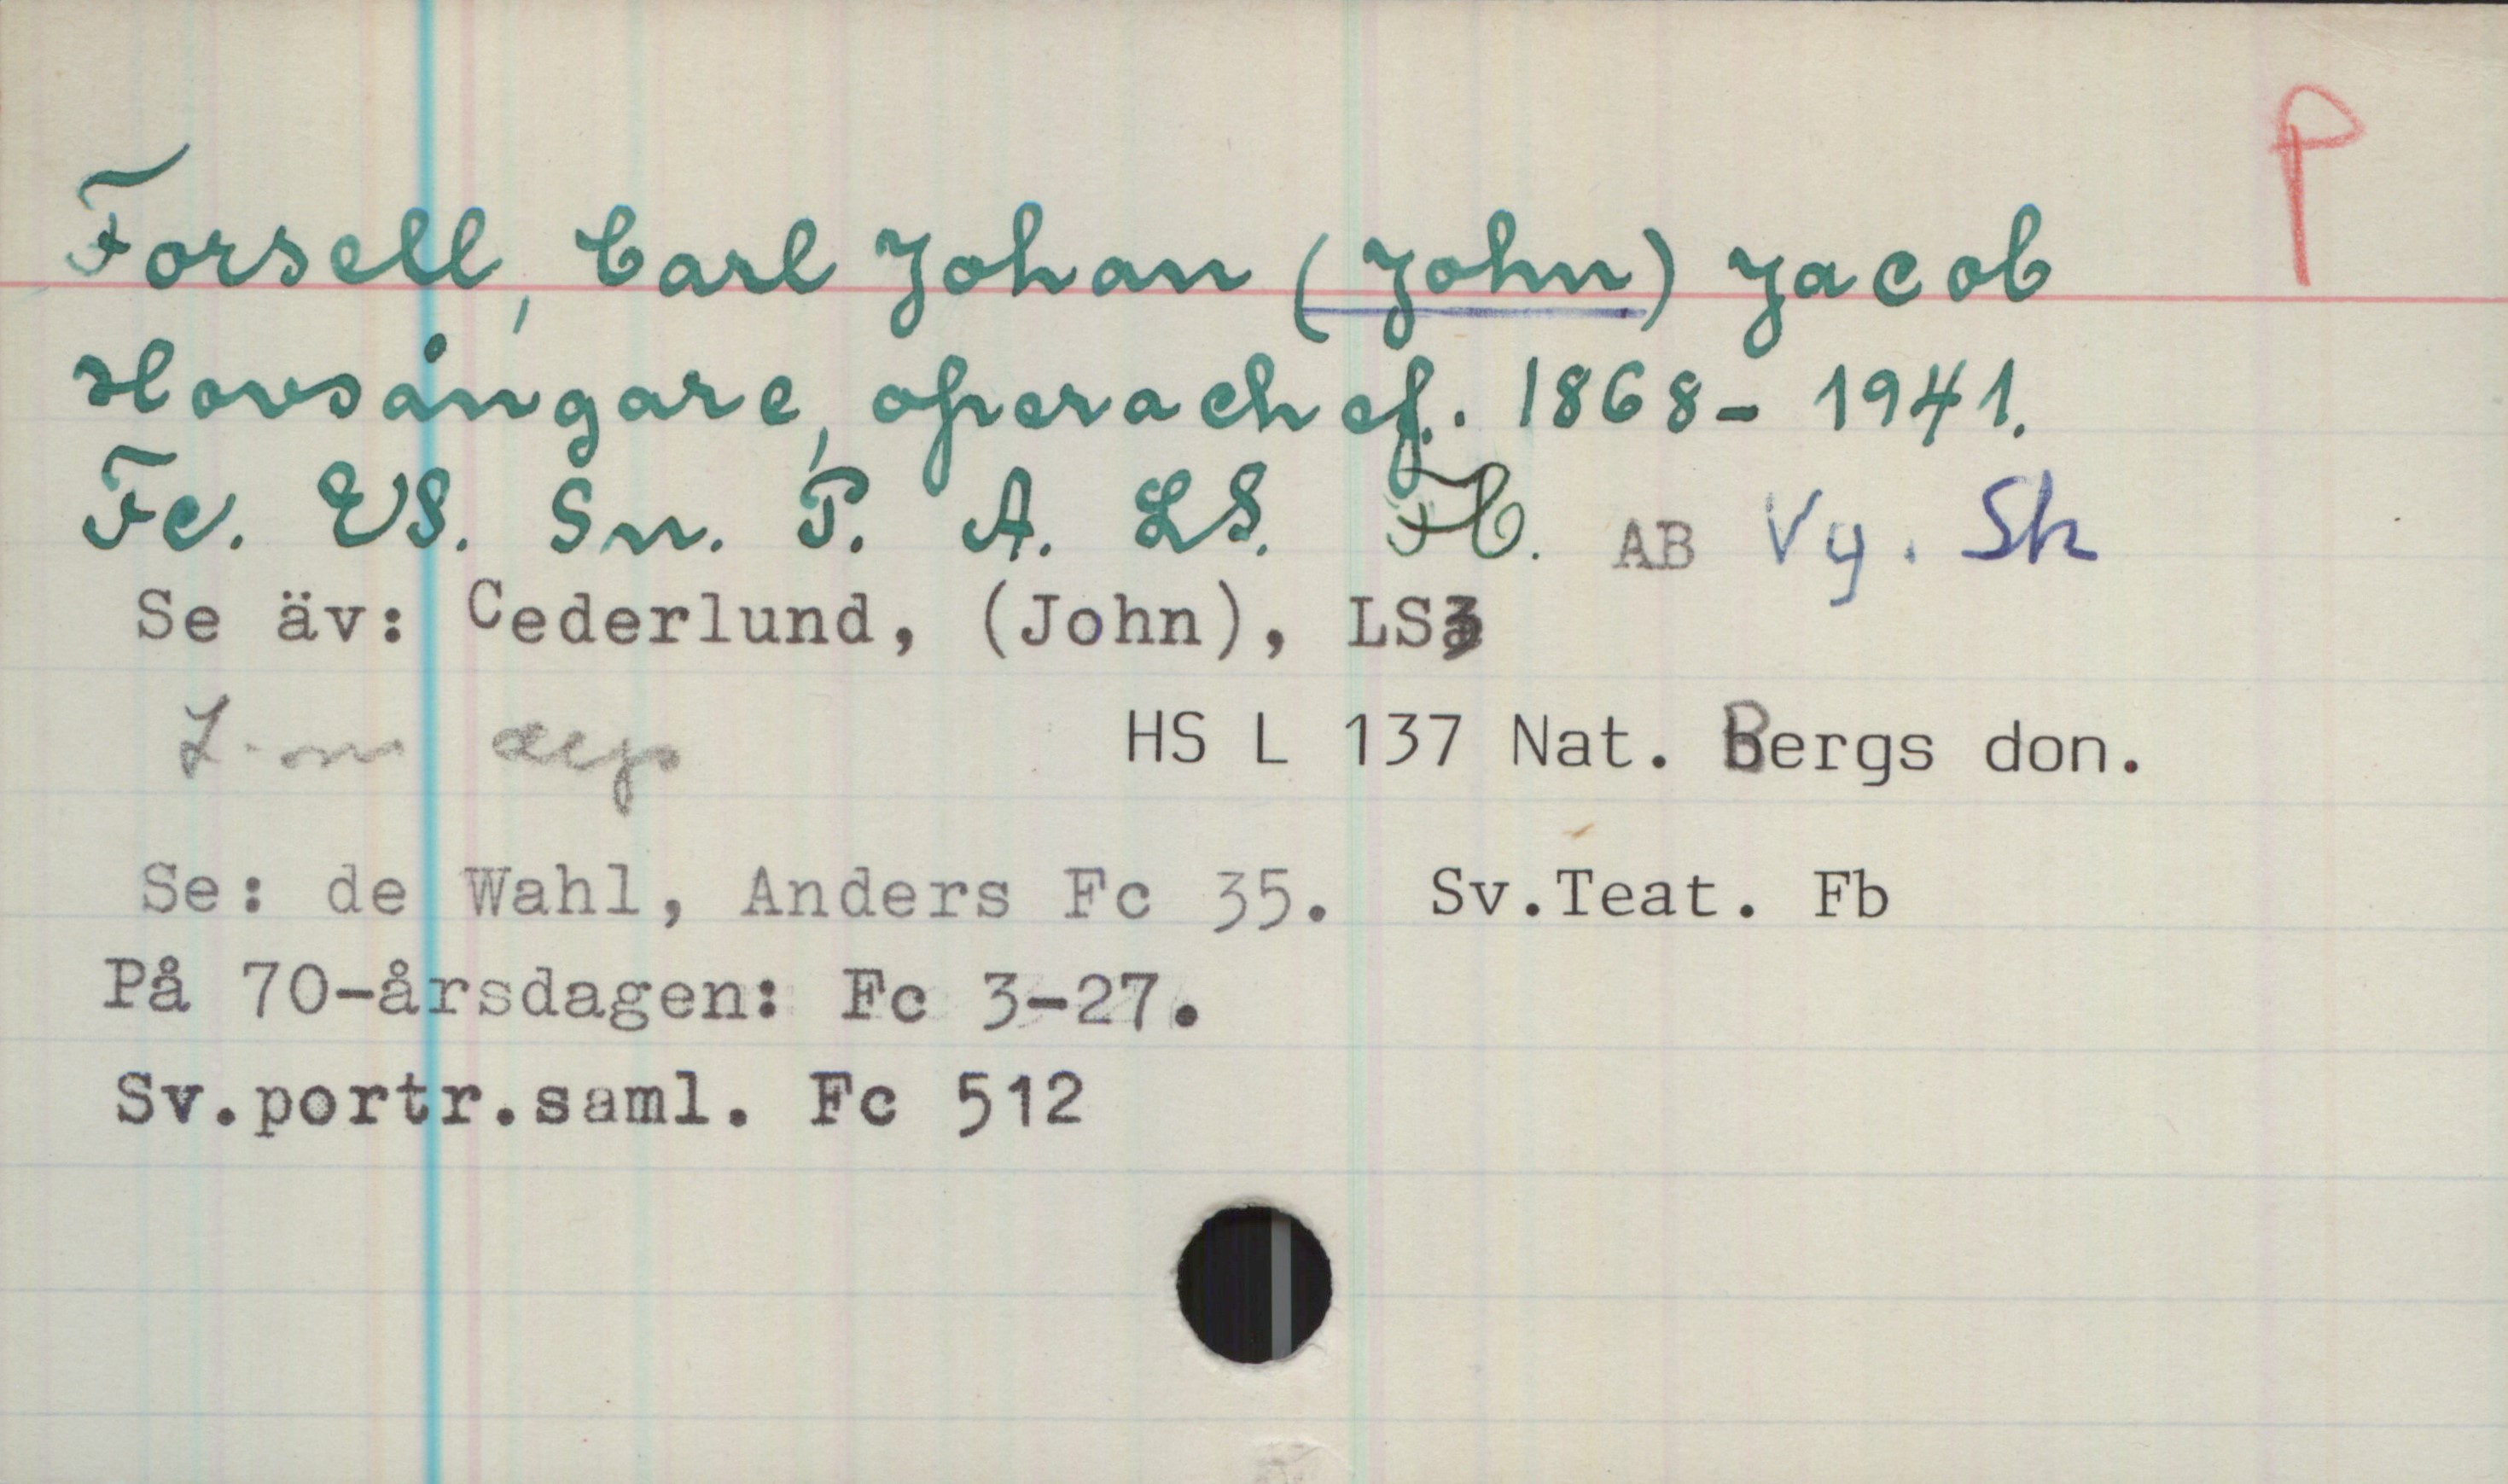 P
Forsell, Carl Johan (John) Jacob
Hovsångare, operachef. 1868-1941.
Fc. ES. Sn. P. A. LS. H. AB Vy. Sk
Se äv: Cederlund, (John), LS3
HS L 137 Nat. Bergs don.
Se: de Wahl, Anders Fc 35. Sv.Teat. Fb
På 70-årsdagen: Fc 3-27.
Sv.portr.saml. Fc 512